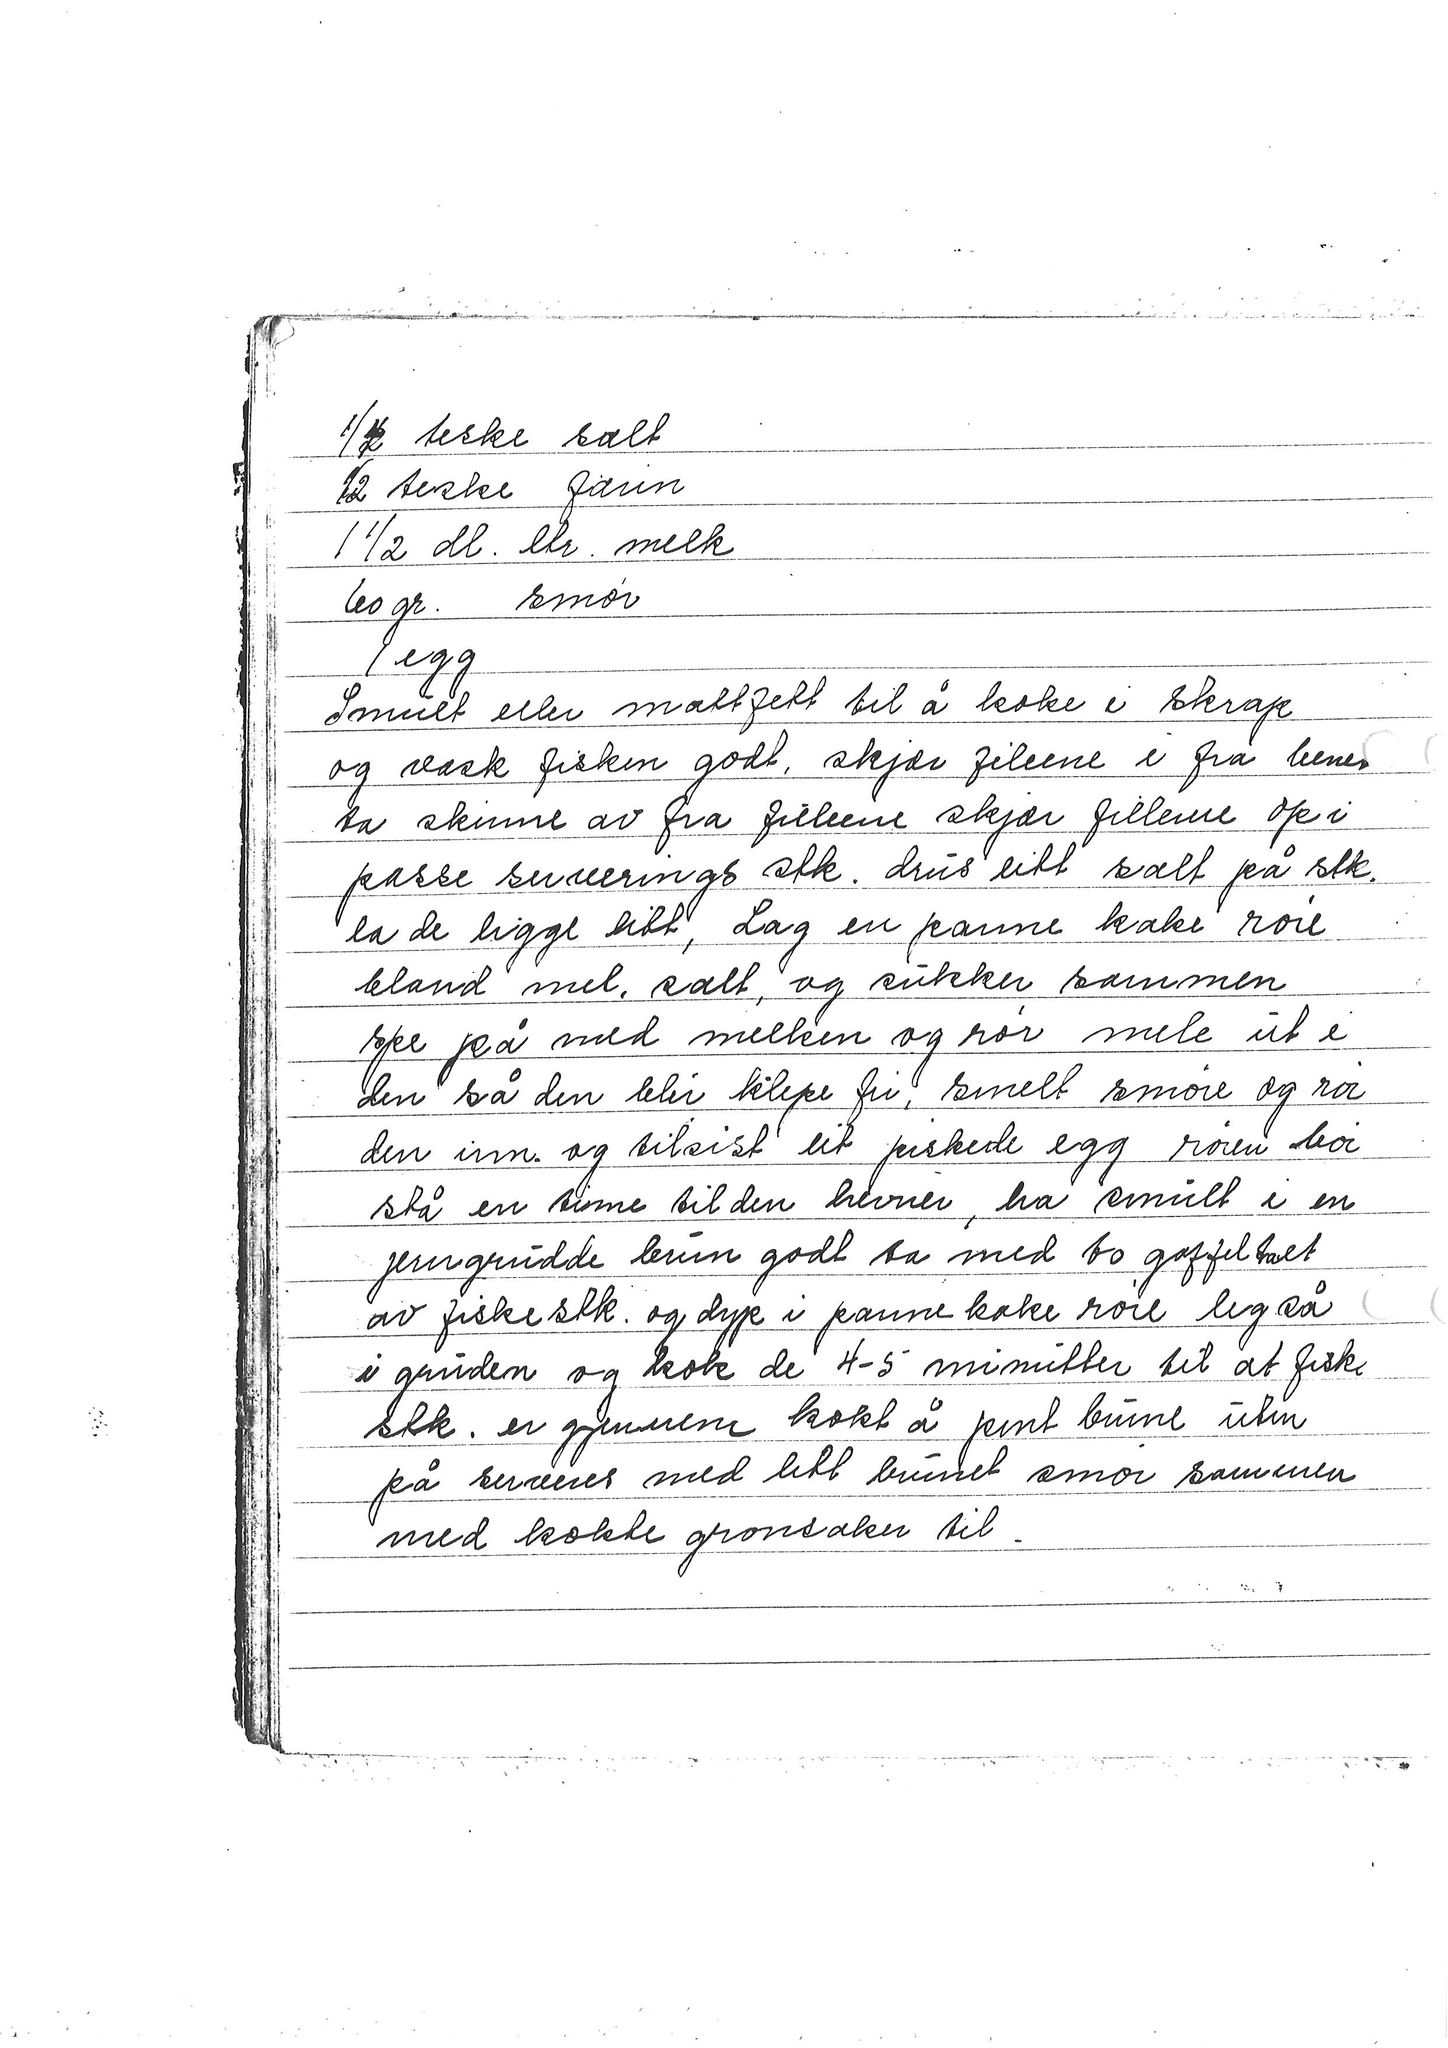 1/2 teske salt
1/2 teske farin
1 1/2 dl. ltr. melk
60 gr. smør
1 egg
Smult eller mattfett til å koke i skrap
og vask fisken godt, skjær fileene i fra benene
ta skinne av fra fileene skjær filleene op i
passe serverings stk. drus litt salt på stk.
la de ligge litt, Lag en panne kake røre
bland mel, salt, og sukker sammen
spe på med melken og rør mele ut i
den så den blir klepe fri, smelt smøre og rør
den inn. og tilsist eit piskede egg røren bør
stå en time til den hevner, ha smult i en
jerngrudde brun godt ta med to gaffel talt
av fiske stk. og dyp i panne kake røre leg så
i gruden og kok de 4-5 minutter til at fiske
stk. er gjennem kokt å pent brune uten
på serveres med litt brunet smør sammen
med kokte grønsaker til.